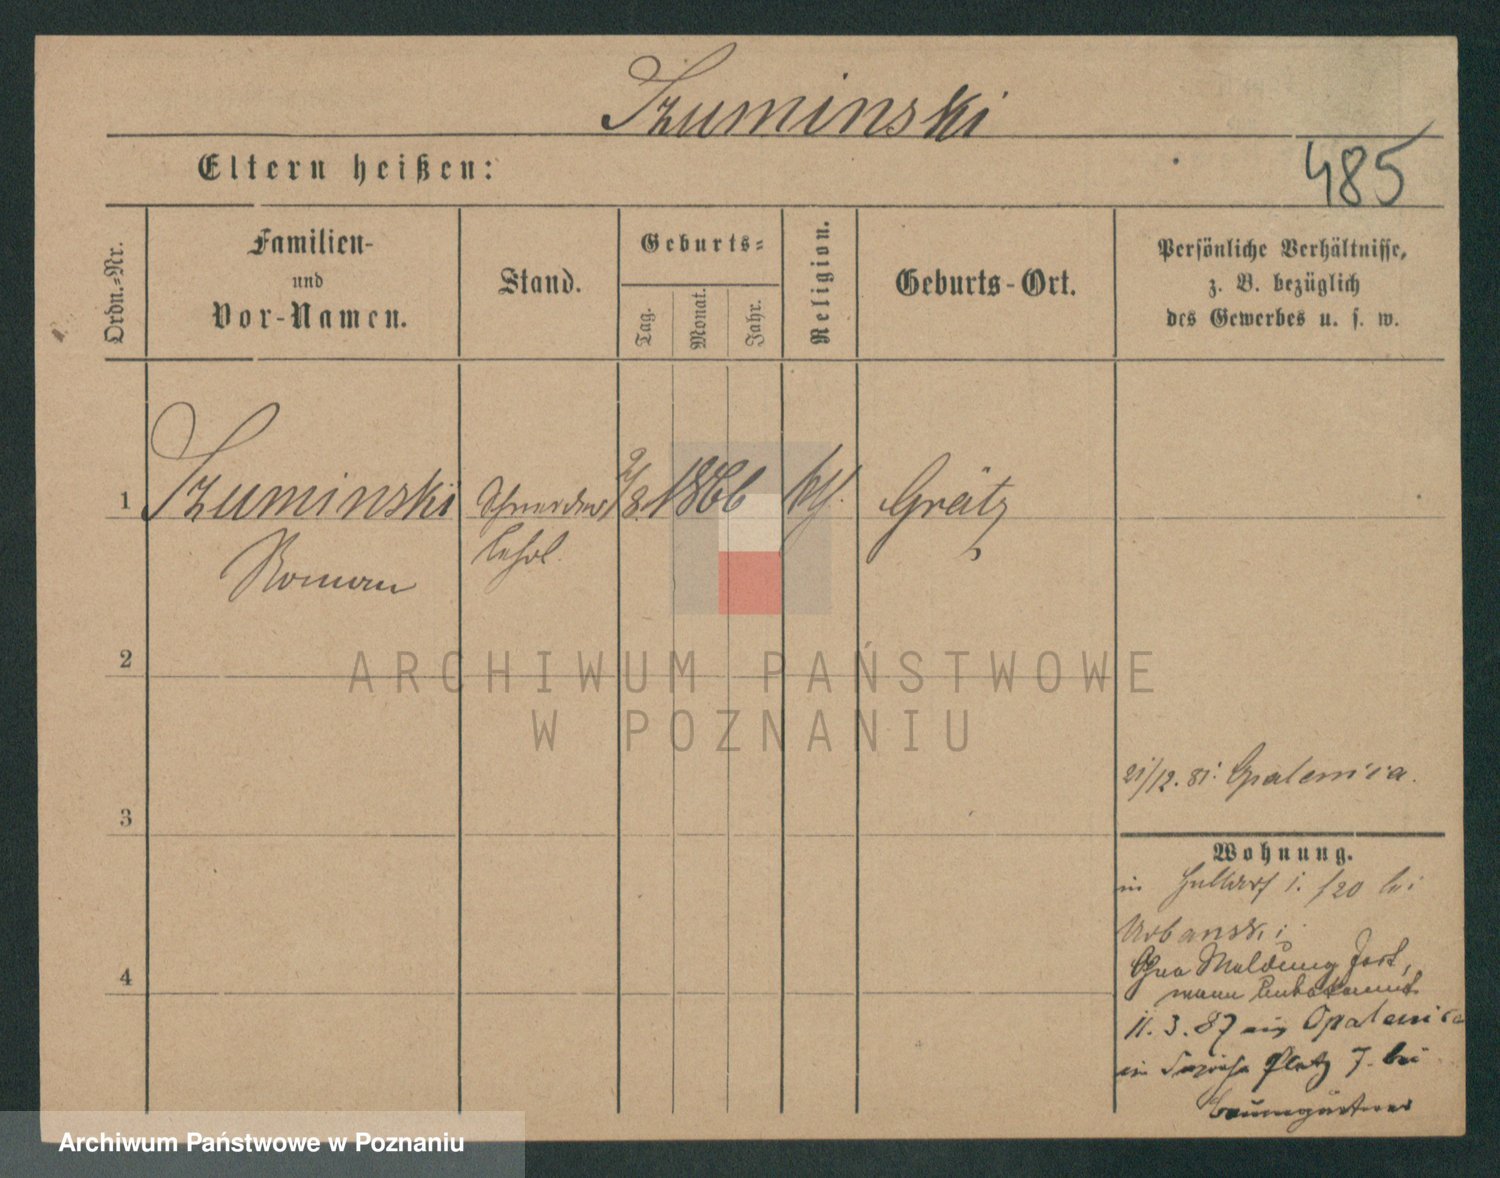 Szuminski
Eltern heißen:
485
Ordn.-Nr.
Familien-
und
Vor-Namen.
Stand.
Geburts-
Tag.
Monat.
Jahr.
Religion.
Geburts-Ort.
Persönliche Verhältnisse,
z. B. bezüglich
des Gewerbes u. s. w.
1
Szuminski
Roman
Schneider
lehrl.
2/8. 1866
kth.
Grätz
2
3
4
21/12. 81. Opalenica.
Wohnung.
in 1. /20 bei
Urbanski
Ohne Meldung fort,
wann unbekannt
11. 3. 87 aus Opalenica
in Sapieha Platz 7. bei
Baumgärtner
ARCHIWUM PAŃSTWOWE
W POZNANIU
Archiwum Państwowe w Poznaniu